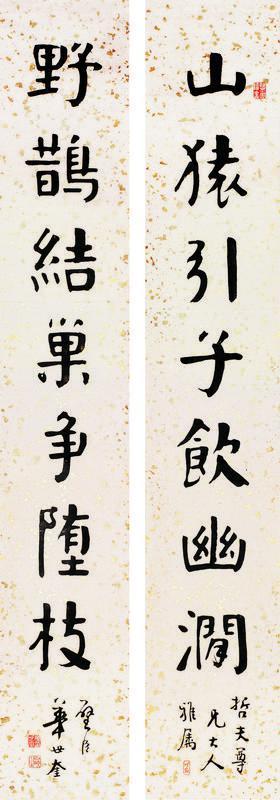 山猿引子飲幽澗
哲夫尊
兄大人
雅属
野鵲結巢争堕枝
璧臣
華世奎